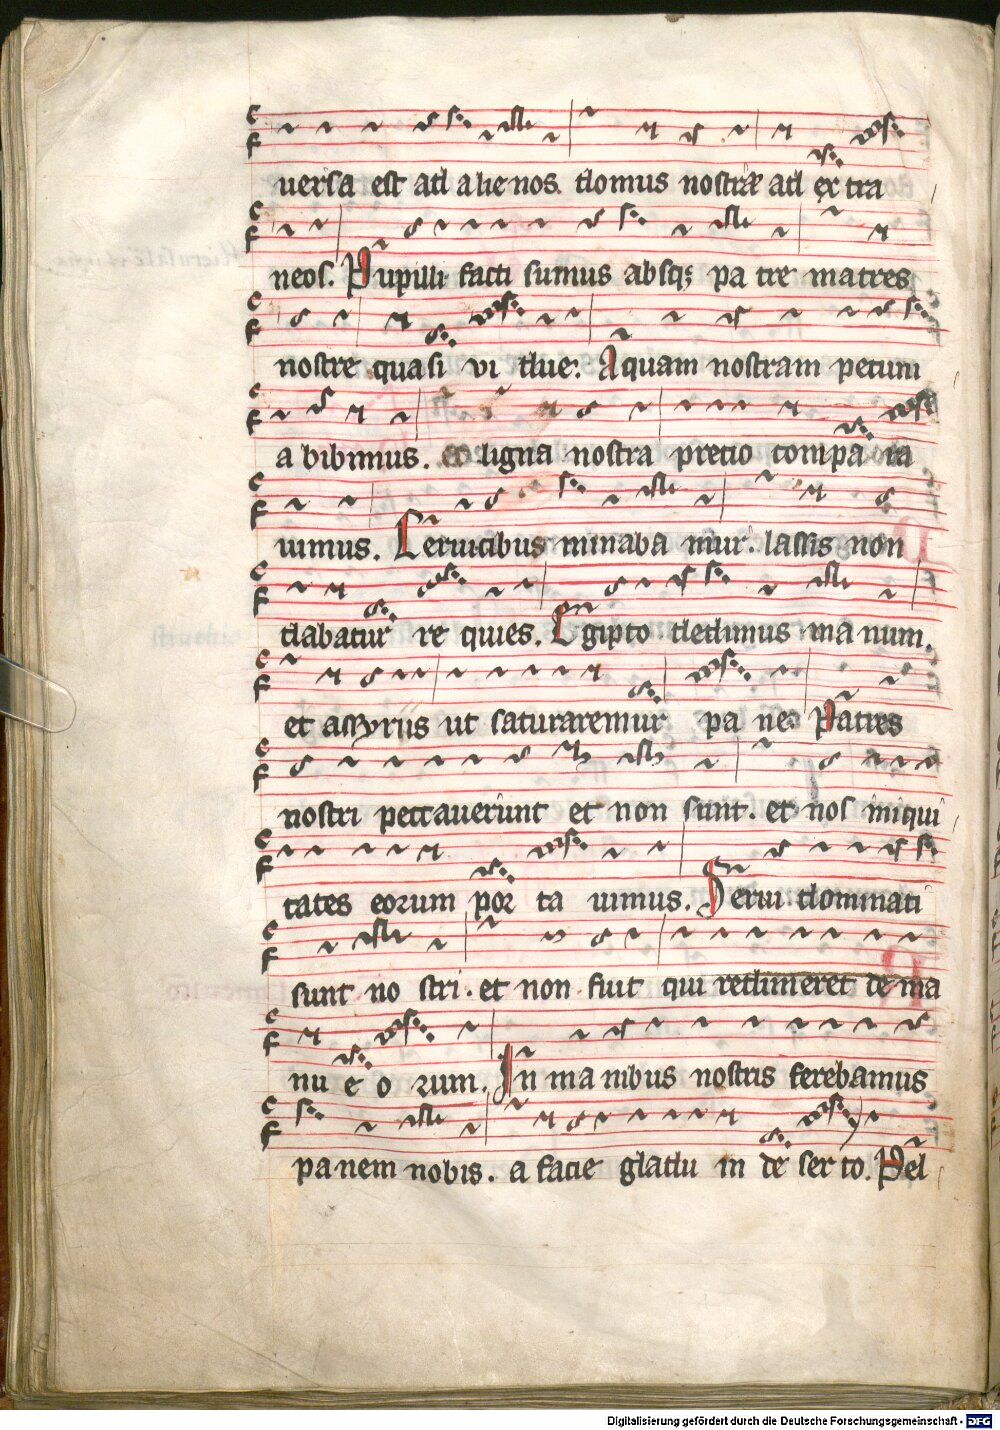 uersa est ad alienos. domus nostrae ad extra
neos. Pupilli facti sumus absq; pa tre matres
nostre quasi vi due. Aquam nostram pecuni
a bibimus. ligna nostra precio compa ra
uimus. Ceruicibus minaba mur. lassis non
dabatur re quies. Egipto dedimus ma num.
et assyriis ut saturaremur pa ne. Patres
nostri peccauerunt et non sunt. et nos iniqui
tates eorum por ta uimus. Serui dominati
sunt no stri. et non fuit qui redimeret de ma
nu e o rum. In ma nibus nostris ferebamus
panem nobis. a facie gladu in de ser to. Pel
Digitalisierung gefördert durch die Deutsche Forschungsgemeinschaft - DFG